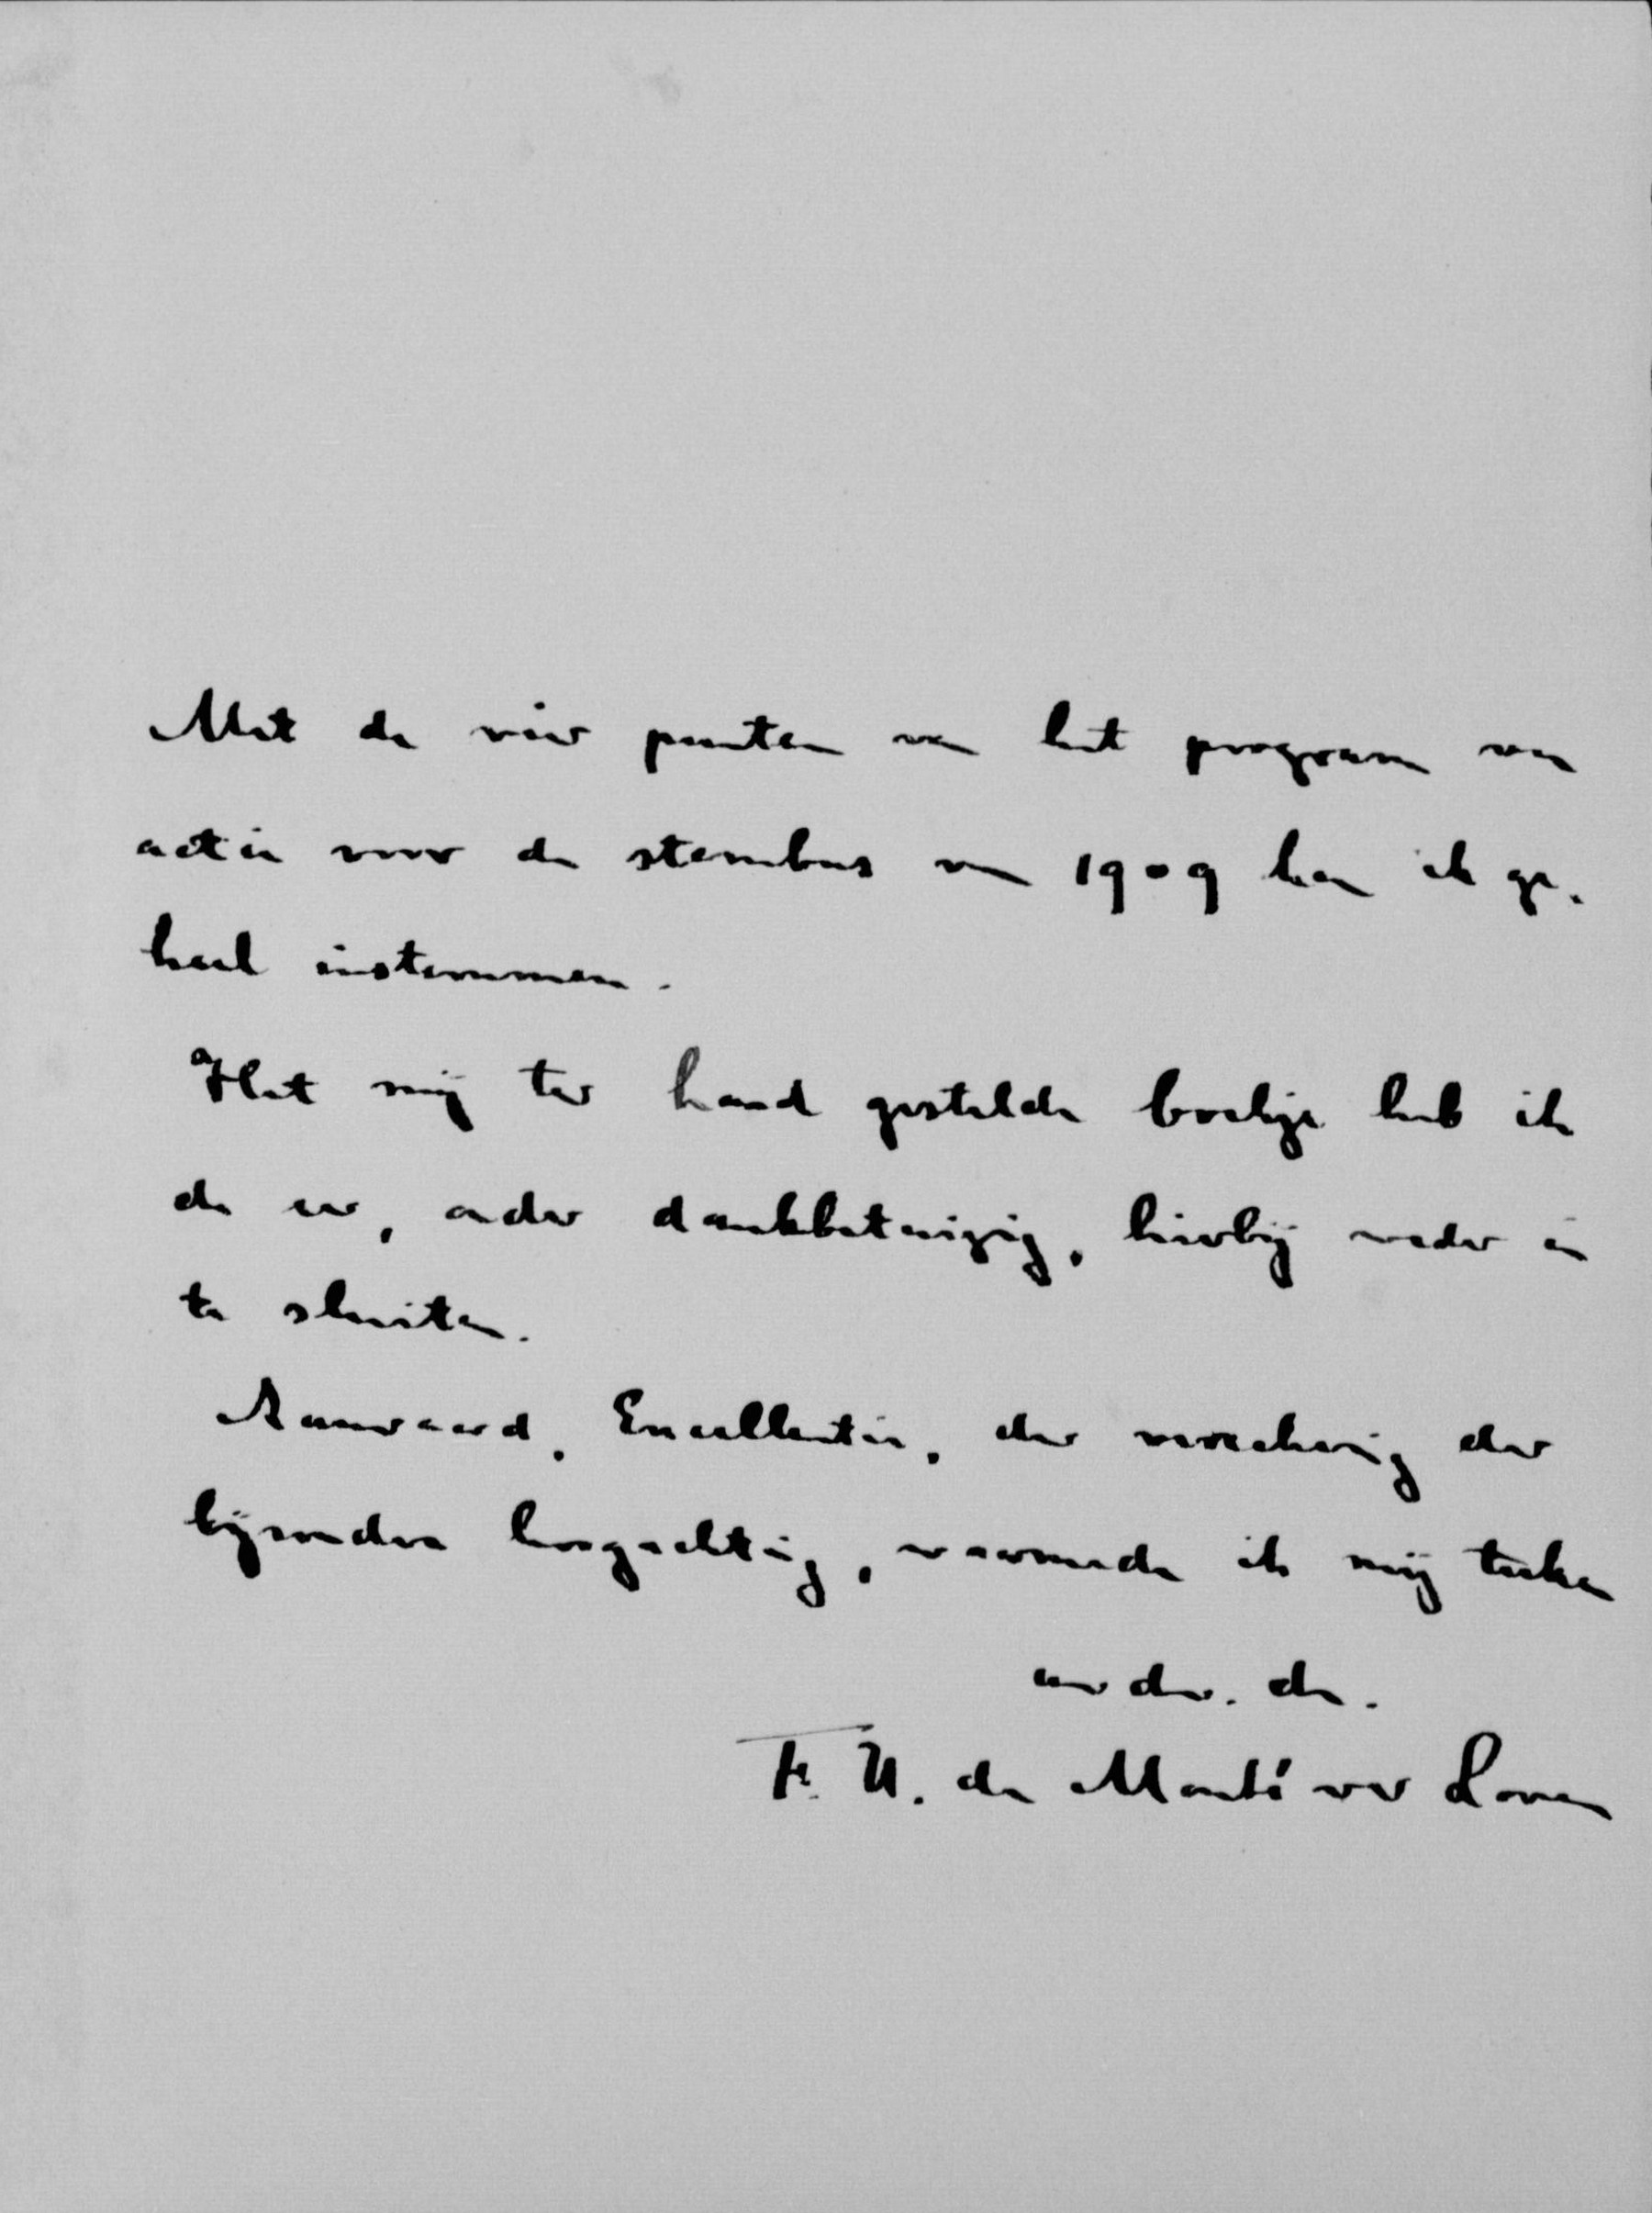 Met de vier punten van het program van
actie voor de stembus van 1909 kan ik ge-
heel instemmen.
Het mij ter hand gestelde boekje heb ik
de eer, onder dankbetuiging, hierbij weder in
te sluiten.
Aanvaard, Excellentie, de verzekering der
bijzondere hoogachting, waarmede ik mij teken
uw dw. dr.
de Monté ver Loren